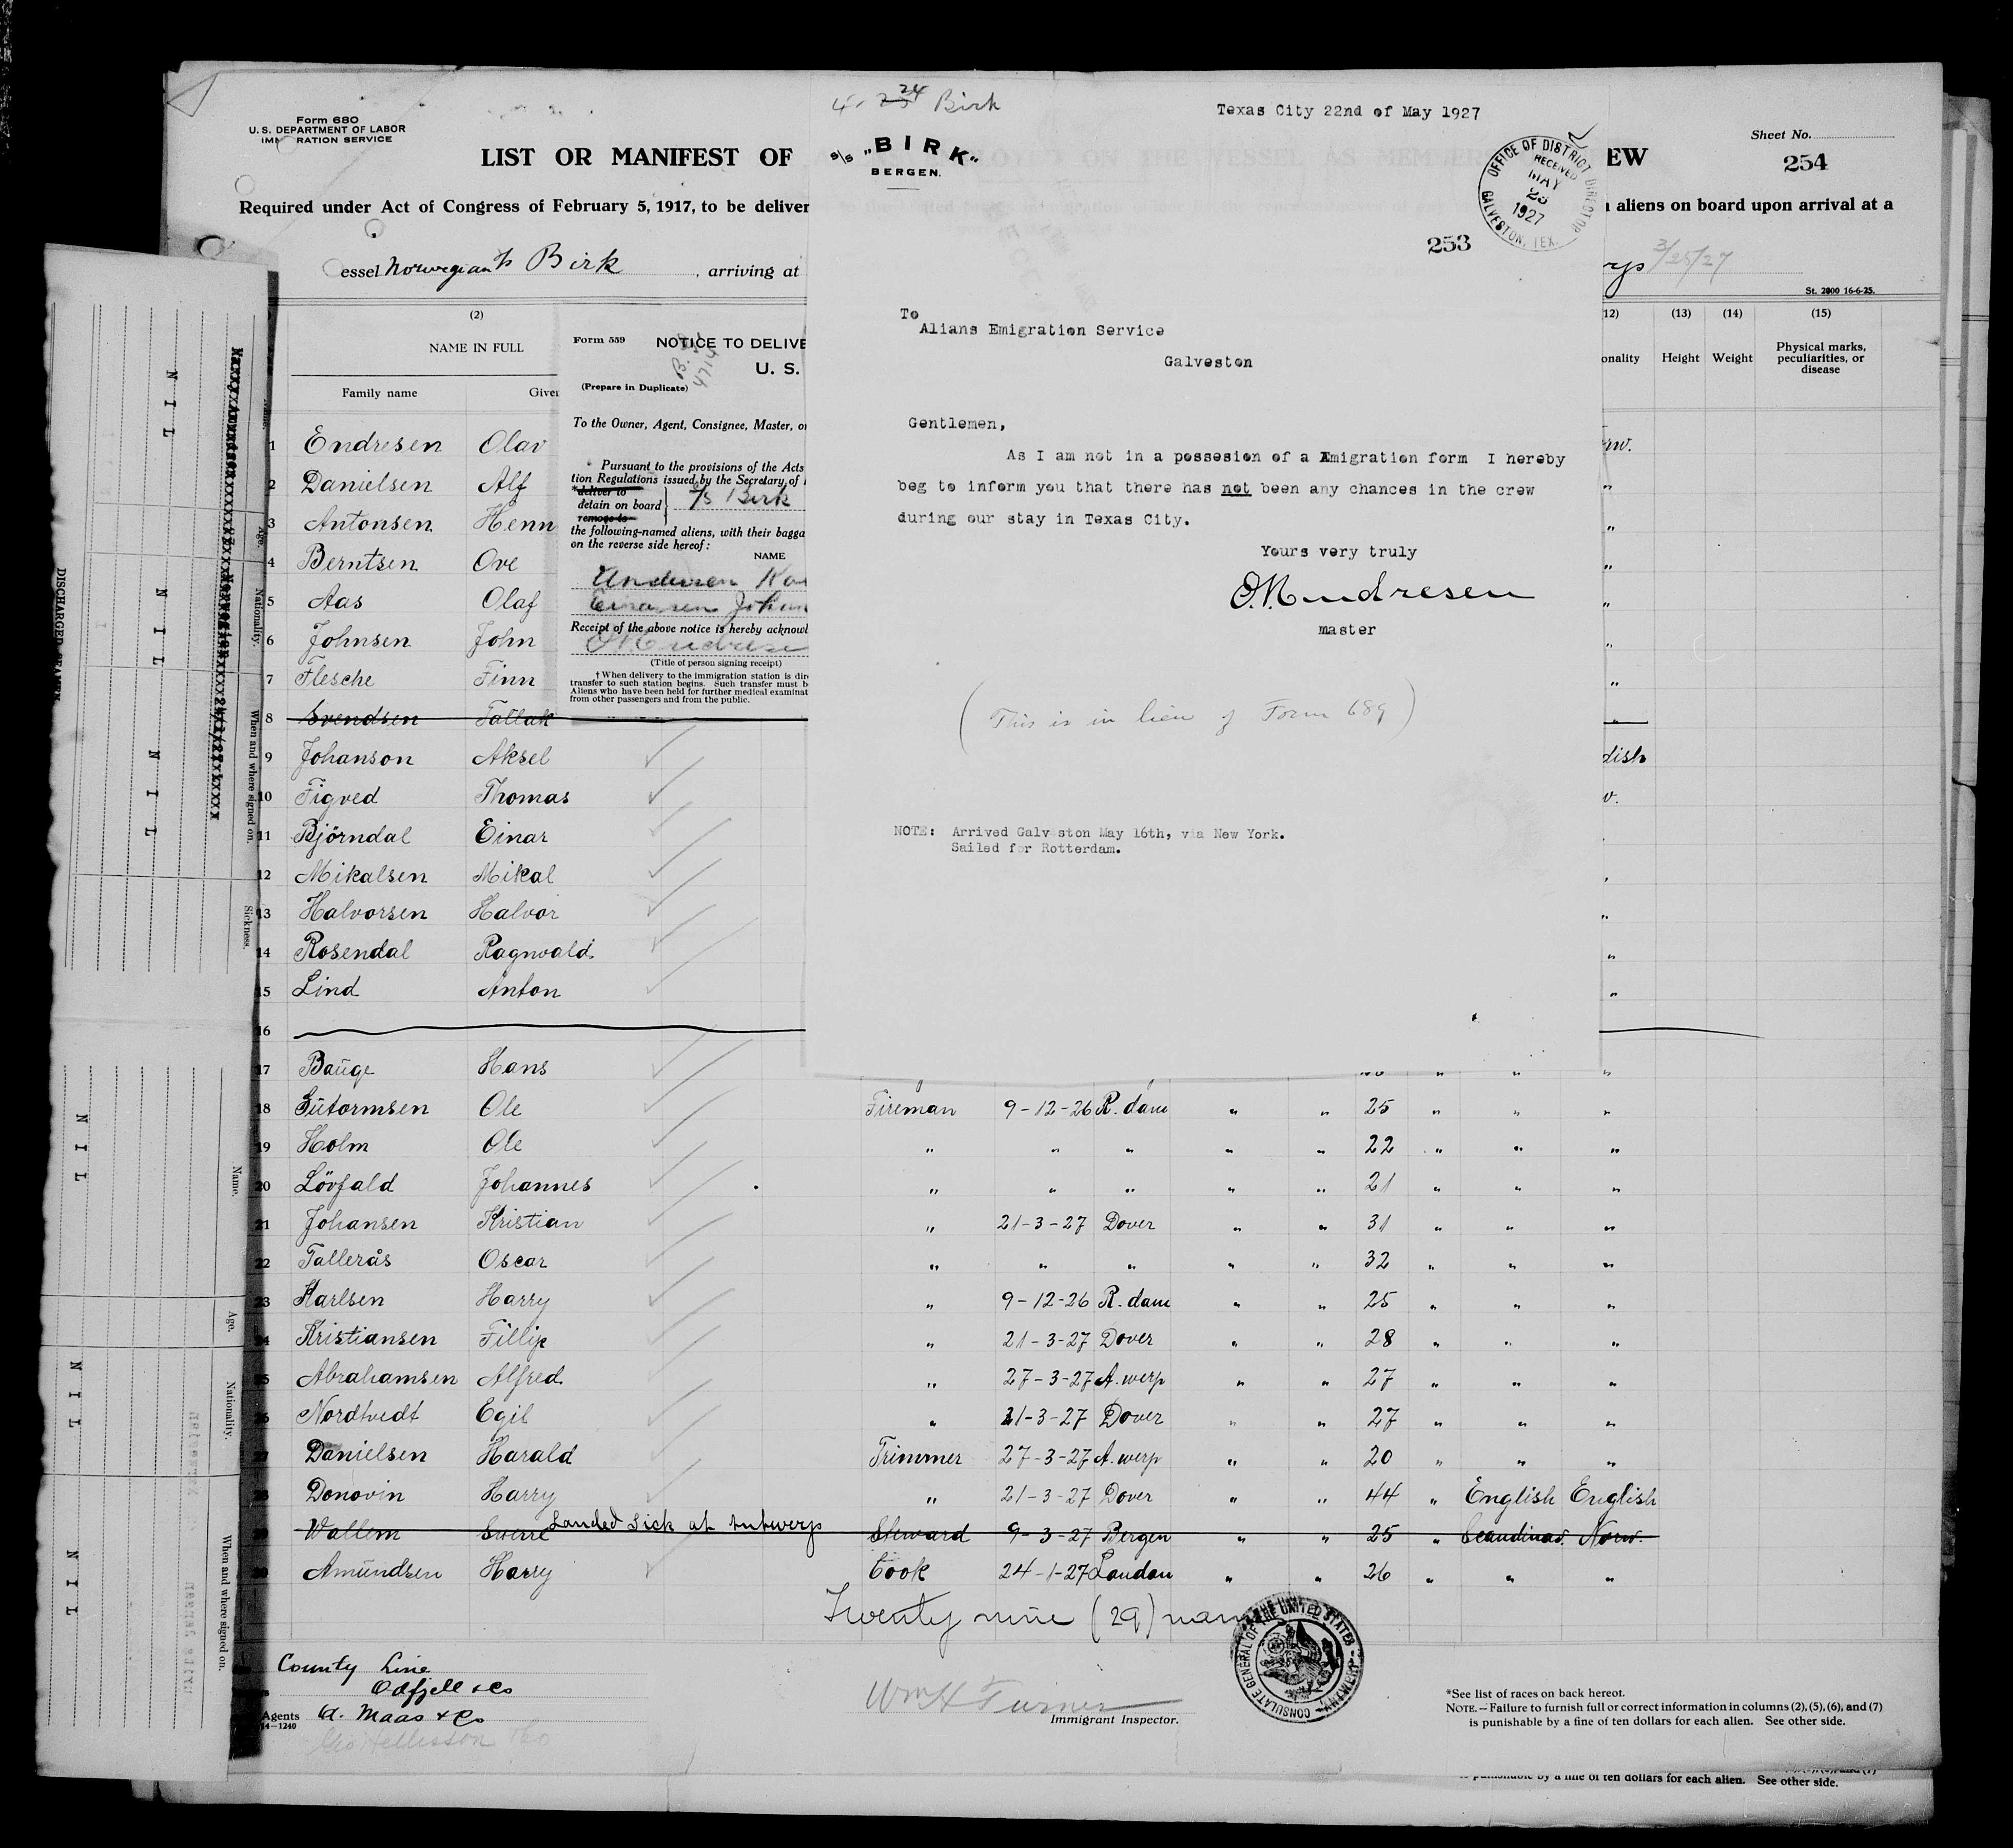 Form 680
U. S. DEPARTMENT OF LABOR
IMM RATION SERVICE
LIST OR MANIFEST OF
EW
Sheet No.
254
Required under Act of Congress of February 5, 1917, to be deliver
aliens on board upon arrival at a
essel Norwegian s/s Birk, arriving at
rys 3/25/27
St. 2000 16-6-25.
(2)
NAME IN FULL
Family name Given
12) (13) (14) (15)
onality Height Weight Physical marks, peculiarities, or disease
1 Endresen Olav rw.
2 Danielsen Alf "
3 Antonsen Henn "
4 Berntsen Ove "
5 Aas Olaf "
6 Johnsen John "
7 Flesche Finn "
8 Svendsen Tallak "
9 Johanson Aksel dish
10 Figved Thomas v.
11 Björndal Einar
12 Mikalsen Mikal
13 Halvorsen Halvor "
14 Rosendal Ragnvald "
15 Lind Anton "
16
17 Baŭge Hans " " "
18 Gŭtormsen Ole Fireman 9-12-26 R.dam " " 25 " " "
19 Holm Ole " " " " " 22 " " "
20 Lövfald Johannes " " " " " 21 " " "
21 Johansen Kristian " 21-3-27 Dover " " 31 " " "
22 Tallerås Oscar " " " " " 32 " " "
23 Karlsen Harry " 9-12-26 R.dam " " 25 " " "
24 Kristiansen Fillip " 21-3-27 Dover " " 28 " " "
25 Abrahamsen Alfred " 27-3-27 A.werp " " 27 " " "
26 Nordtvedt Egil " 21-3-27 Dover " " 27 " " "
27 Danielsen Harald Trimmer 27-3-27 A.werp " " 20 " " "
28 Donovin Harry " 21-3-27 Dover " " 44 " English English
29 Wallem Sverre Landed Sick at Antwerp Steward 9-3-27 Bergen " " 25 " Scandinav. Norw.
30 Amŭndsen Harry Cook 24-1-27 London " " 26 " " "
Twenty nine (29) nam
County Line
Odfjell & Co
Agents W. Maas & Co
14-1240
Wm H Turner
Immigrant Inspector.
CONSULATE GENERAL OF THE UNITED STATES ANTWERP
*See list of races on back hereof.
NOTE.—Failure to furnish full or correct information in columns (2), (5), (6), and (7)
is punishable by a fine of ten dollars for each alien. See other side.
is punishable by a fine of ten dollars for each alien. See other side.
Form 559
NOTICE TO DELIVE
U. S.
(Prepare in Duplicate)
To the Owner, Agent, Consignee, Master, o
Pursuant to the provisions of the Acts
tion Regulations issued by the Secretary of
*deliver to
detain on board
remove to
s/s Birk
the following-named aliens, with their bagga
on the reverse side hereof:
NAME
Andersen Ka
Einarsen Johan
Receipt of the above notice is hereby acknowl
(Title of person signing receipt)
† When delivery to the immigration station is dire
transfer to such station begins. Such transfer must b
Aliens who have been held for further medical examinat
from other passengers and from the public.
4. 23 24 Birk
S/S „BIRK"
BERGEN.
Texas City 22nd of May 1927
OFFICE OF DISTRICT DIRECTOR
RECEIVED
MAY
23
1927
GALVESTON, TEX.
253
To
Alians Emigration Service
Galveston
Gentlemen,
As I am not in a possesion of a Emigration form I hereby
beg to inform you that there has not been any chances in the crew
during our stay in Texas City.
Yours very truly
master
(This is in lieu of Form 689)
NOTE: Arrived Galv ston May 16th, via New York.
Sailed for Rotterdam.
DISCHARGED SEAMEN.
Name.
Age.
Nationality.
When and where signed on.
Sickness.
N I L
N I L
N I L
N I L
N I L
N I L
N I L
Name.
Age.
Nationality.
When and where signed on.